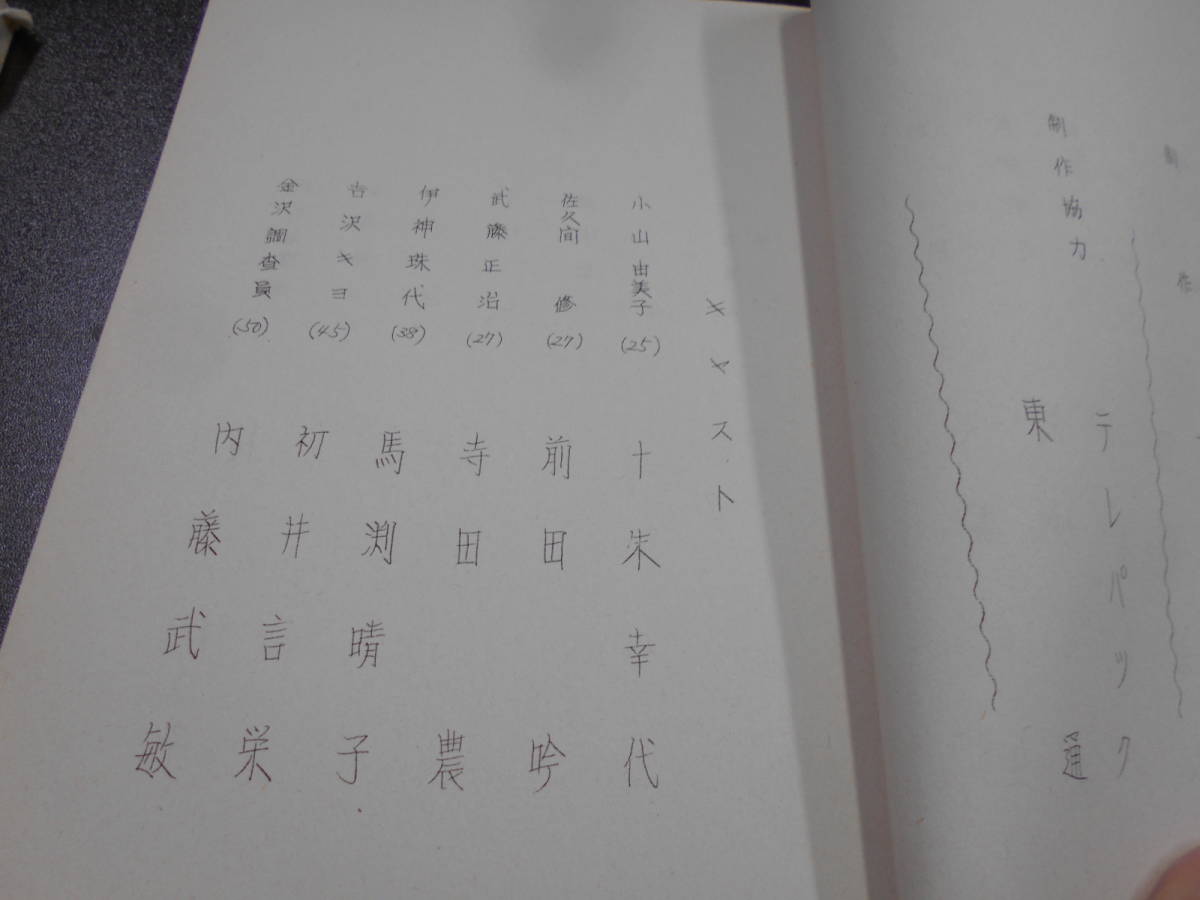 制作
テレパック
制作協力
東通
キャスト
小山由美子(25) 十朱幸代
佐久間修(27) 前田吟
武藤正治(27) 寺田農
伊神珠代(38) 馬渕晴子
吉沢キヨ(45) 初井言栄
金沢調査員(50) 内藤武敏